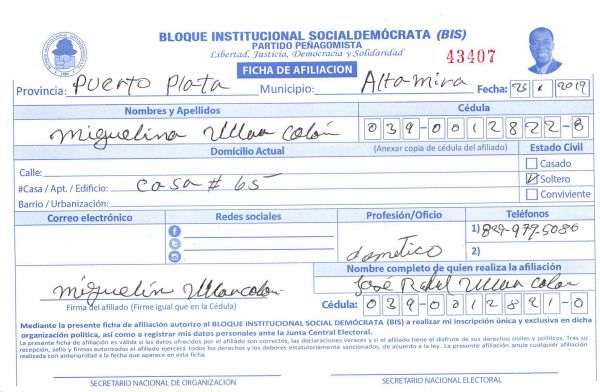 BLOQUE INSTITUCIONAL SOCIALDEMÓCRATA (BIS)
PARTIDO PEÑAGOMISTA
Libertad, Justicia, Democracia y Solidaridad
43407
FICHA DE AFILIACION
Provincia: Puerto Plata Municipio: Altamira Fecha: 2019
Nombres y Apellidos Cédula
Miguelina Ulloa Colón 039-0012822-8
Domicilio Actual (Anexar copia de cédula del afiliado) Estado Civil
Calle: Casado
#Casa / Apt. / Edificio: casa # 65 Soltero
Barrio / Urbanización: Conviviente
Correo electrónico Redes sociales Profesión/Oficio Teléfonos
1) 829-979-5086
domestico 2)
Nombre completo de quien realiza la afiliación
Miguelin Ulloa Colon José Rafael Ulloa Colon
Firma del afiliado (Firme igual que en la Cédula) Cédula: 039-0012821-0
Mediante la presente ficha de afiliado autorizo al BLOQUE INSTITUCIONAL SOCIAL DEMÓCRATA (BIS) a realizar mi inscripción única y exclusiva en dicha
organización política, así como a registrar mis datos personales ante la Junta Central Electoral.
La presente ficha de afiliación es válida si los datos ofrecidos por el afiliado son correctos, las declaraciones veraces y si el afiliado tiene el disfrute de sus derechos civiles y políticos. Tras su
recepción, sello y firmas autorizadas el afiliado ejercerá todos los derechos y los deberes estatutariamente sancionados, de acuerdo a la ley. La presente afiliación anula cualquier afiliación
realizada con anterioridad a la fecha que aparece en esta ficha.
SECRETARIO NACIONAL DE ORGANIZACIÓN SECRETARIO NACIONAL ELECTORAL